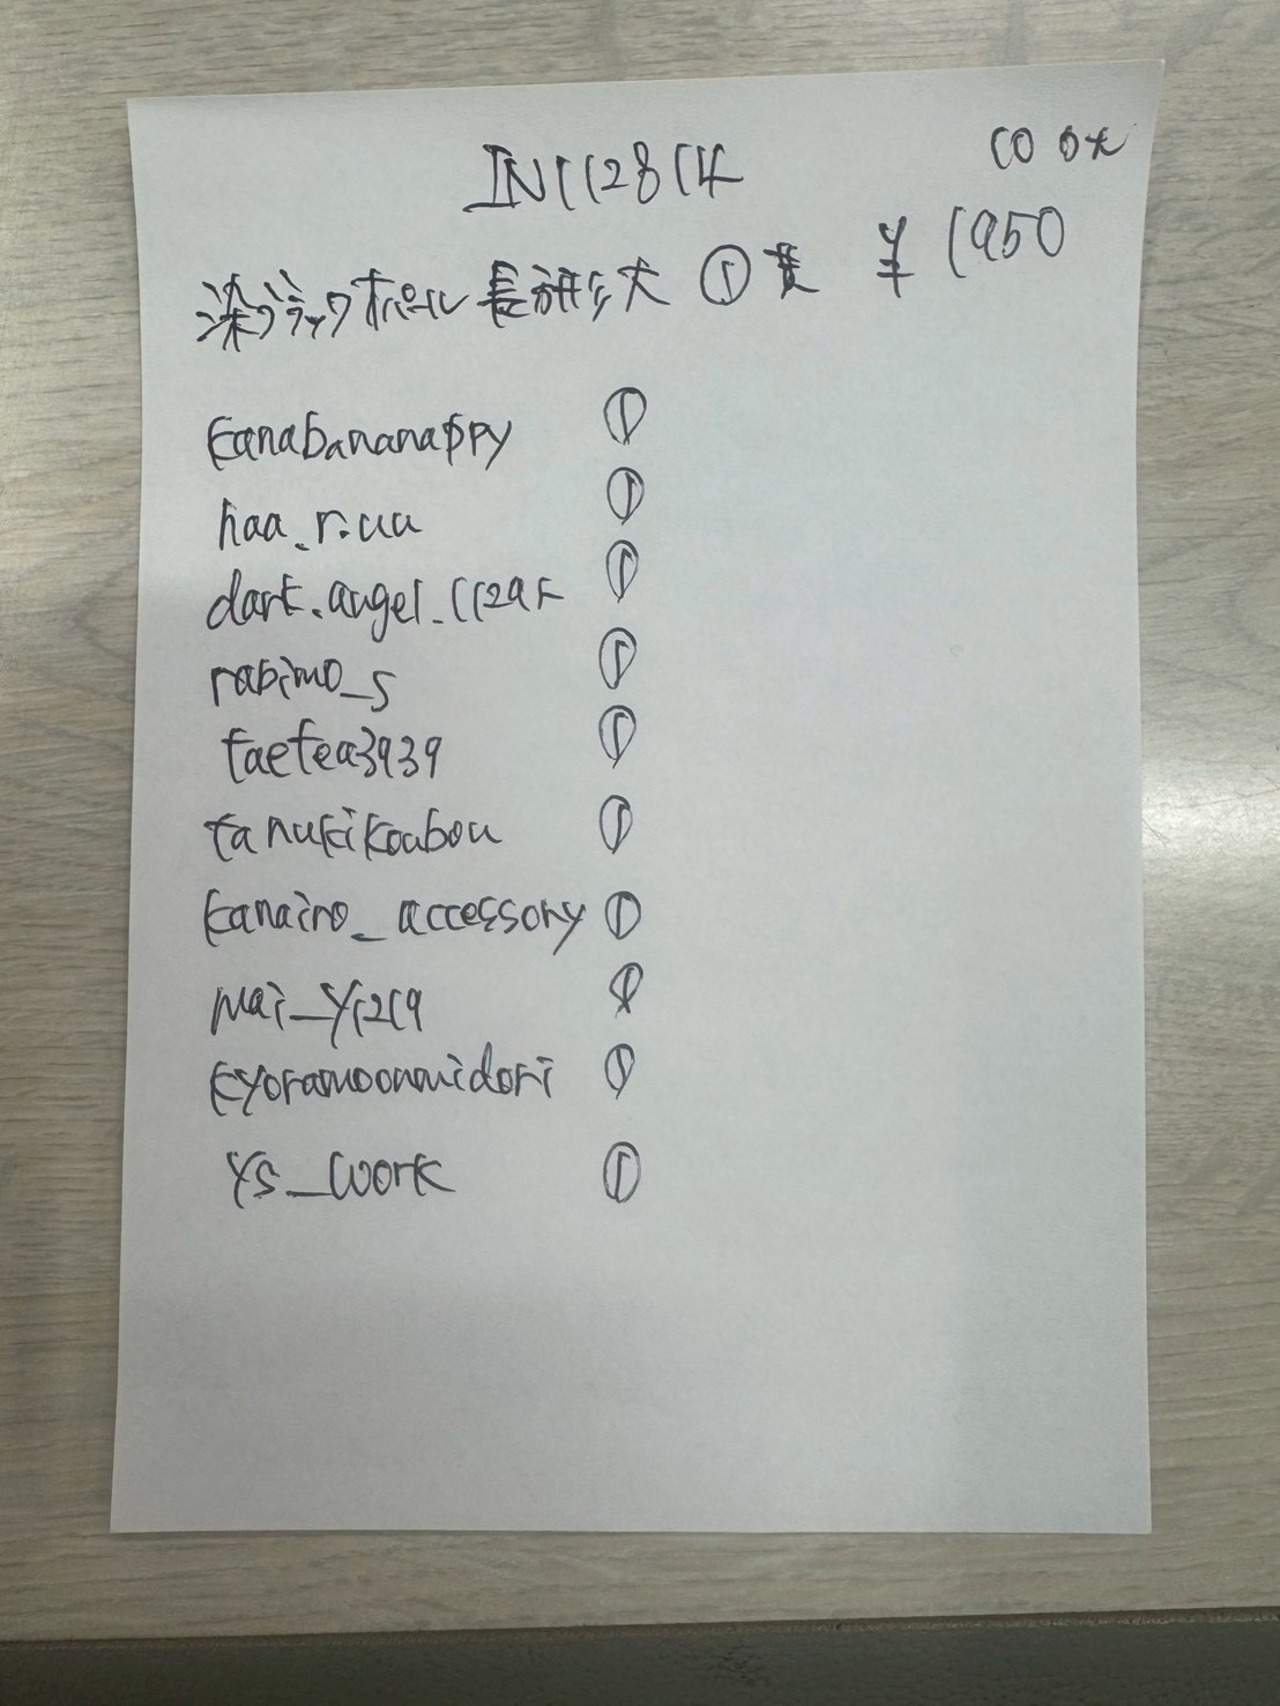 IN112814 100ok
染ブラックオパール長方形大 ① 黄 ¥1950
kanabananappy ①
haa_r.uu ①
dark.angel_1129k ①
rabimo_s ①
taetea3939 ①
tanukikoubou ①
kanairo_accessory ①
mai_y1219 ①
kyoramoonmidori ①
ys_work ①